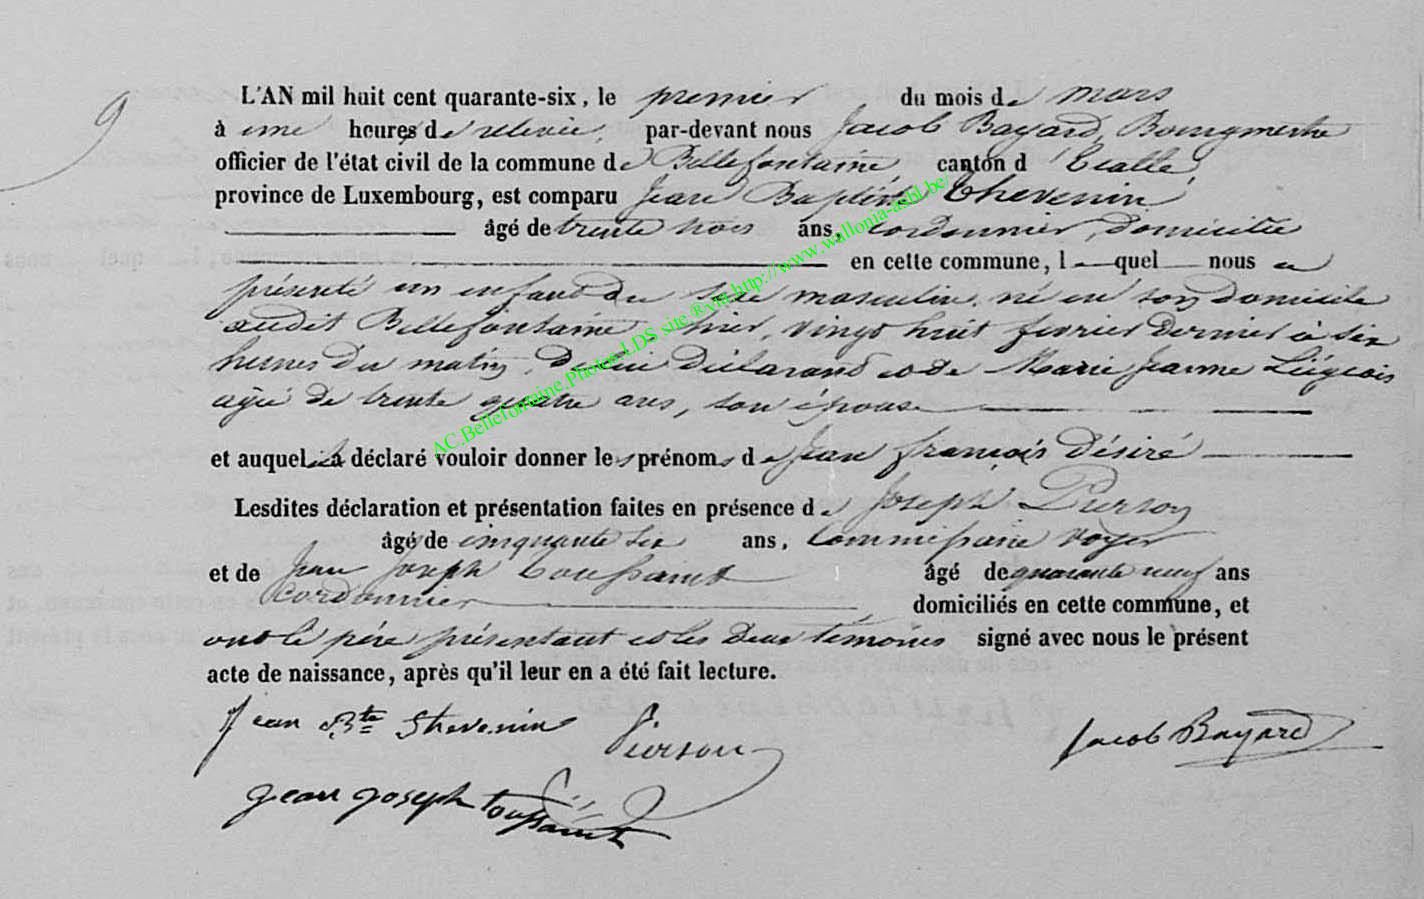 9
L'AN mil huit cent quarante-six, le premier du mois de mars
à une heures de relevée, par-devant nous Jacob Bayard, Bourgmestre
officier de l'état civil de la commune de Bellefontaine, canton d'Etalle,
province de Luxembourg, est comparu Jean Baptiste Thevenin
âgé de trente trois ans, cordonnier, domicilié
en cette commune, lequel nous a
présenté un enfant du sexe masculin, né en son domicile
audit Bellefontaine hier, vingt huit fevrier dernier à six
heures du matin, de lui déclarant et de Marie Jeanne Liégeois
agée de trente quatre ans, son épouse
et auquel il a déclaré vouloir donner les prénoms de Jean françois Désiré
Lesdites déclaration et présentation faites en présence de Joseph Pierson
âgé de cinquante six ans, Commissaire voyer
et de Jean Joseph Toussaint âgé de quarante neuf ans
cordonnier domiciliés en cette commune, et
ont le père présentant et les deux témoins signé avec nous le présent
acte de naissance, après qu'il leur en a été fait lecture.
Jean Bte Thevenin Pierson Jacob Bayard
Jean Joseph toussaint
AC.Bellefontaine.Photos.LDS site ® via http://www.wallonia-asbl.be/